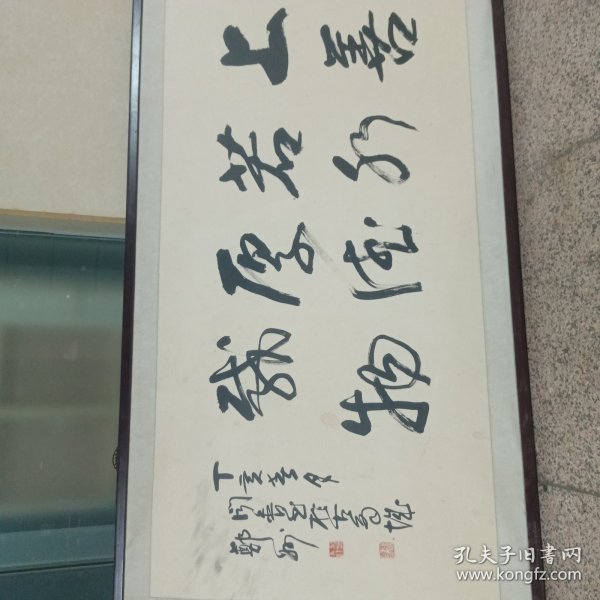 上善
若水
厚德
載物
丁亥春月
鄭州
孔夫子旧书网
www.kongfz.com